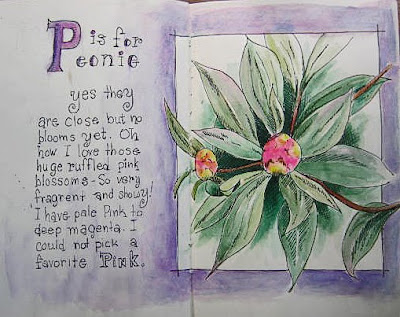 P is for
Peonie
yes they
are close but no
blooms yet. Oh
how I love those
huge ruffled pink
blossoms - So very
fragrent and showy!
I have pale Pink to
deep magenta. I
could not pick a
favorite Pink.